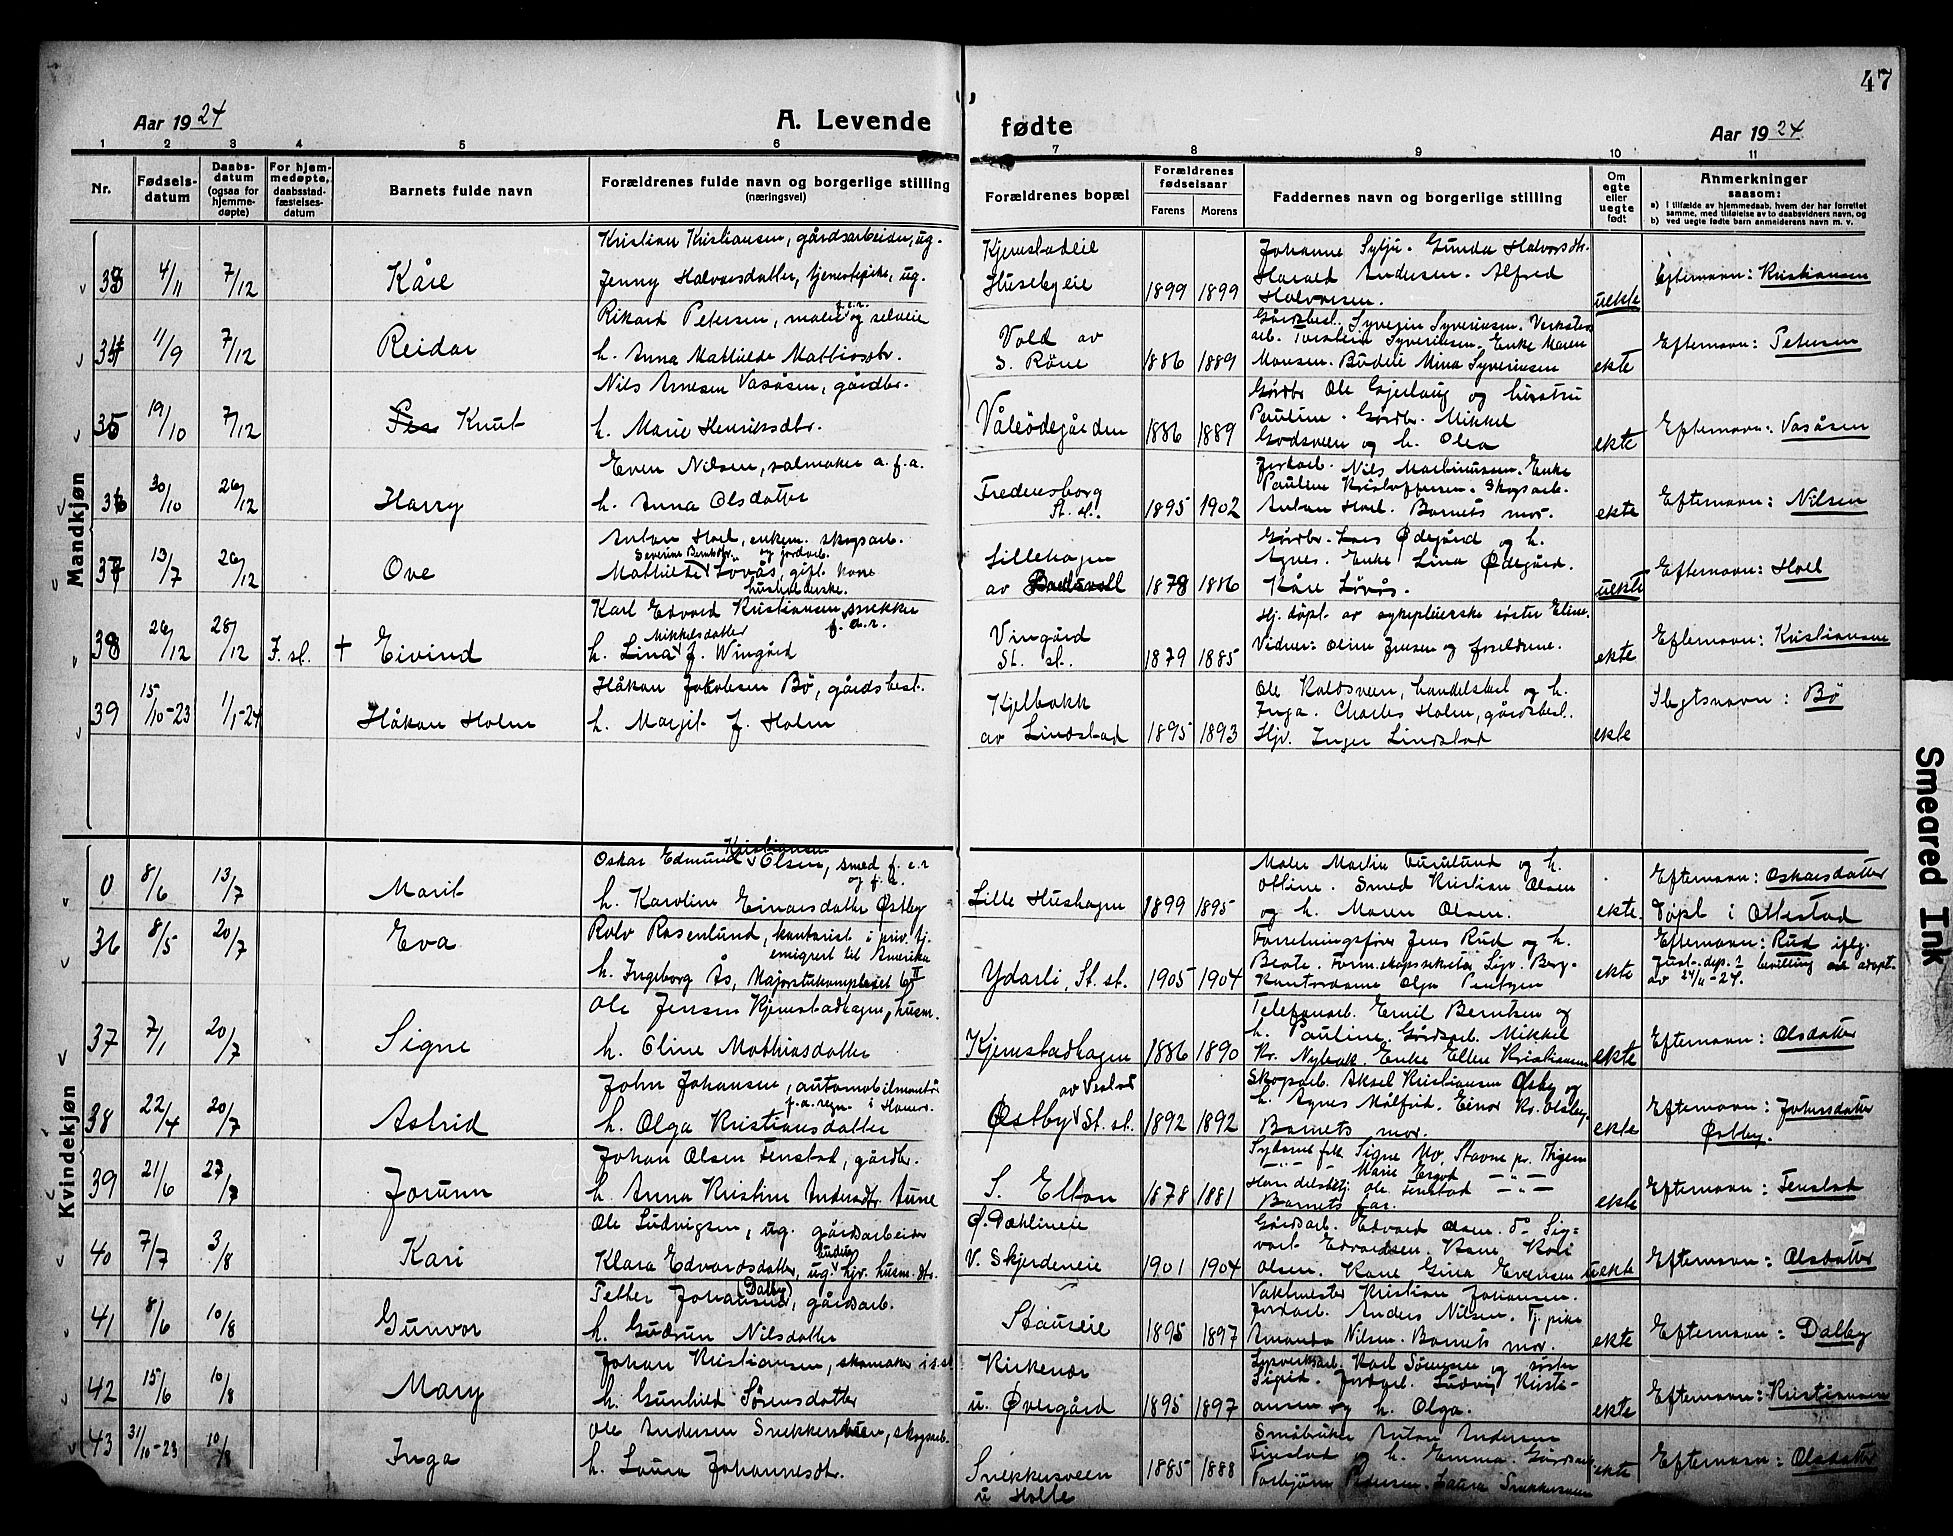 47
Aar 1924
A. Levende
fødte
Aar 1924
1 2 3 4 5 6 7 8 9 10 11
Nr.
Fødsels-
datum
Daabs-
datum
(ogsaa for
hjemme-
døpte)
For hjem-
medøpte,
daabsstad-
fæstelses-
datum
Barnets fulde navn
Forældrenes fulde navn og borgerlige stilling
(næringsvei)
Forældrenes bopæl
Forældrenes
fødselsaar
Farens Morens
Faddernes navn og borgerlige stilling
Om
egte
eller
uegte
født
Anmerkninger
saasom:
a) i tilfælde av hjemmedaab, hvem der har forrettet
samme, med tilføielse av to daabsvidners navn, og
b) ved uegte fødte barn anmelderens navn m. v.
Mandkjøn
33 4/11 7/12 Kåre
Kristian Kristiansen, gårdsarbeider, ug.
Jenny Halvorsdatter, tjenestepike, ug.
Kjemstadeie
Husebyeie
1899 1899
Johanne Sylju. Gunda Halvorsdtr.
Harald Andersen. Alfred
Halvorsen.
uekte
Efternavn: Kristiansen
34 11/9 7/12 Reidar
Rikard Petersen, maler og selveier
h. Anna Mathilde Mathiasdtr.
Vold av
S. Röne
1886 1889
Gårdbest. Syverin Syverinsen. Verksteds
arb. Torstein Syverinsen. Enke Maren
Monsen. Budeie Mina Syverinsen
ekte
Efternavn: Petersen
35 19/10 7/12 Per Knut
Nils Arnesen Vasåsen, gårdbr.
h. Marie Henriksdtr.
Våleödegården
1886 1889
Gårdbr Ole Gjerlaug og hustru
Pauline. Gårdbr. Mikkel
Godsveen og h. Olea
ekte
Efternavn: Vasåsen
36 30/10 26/12 Harry
Even Nilsen, salmaker a.f.a.
h. Anna Olsdatter
Fredensborg
St. sl.
1895 1902
Jordarb. Nils Martinussen. Enke
Pauline Kristoffersen. Skogsarb.
Anton Hoel. Barnets mor.
ekte
Efternavn: Nilsen
37 13/7 26/12 Ove
Anton Hoel, enkem. skogsarb.
Severine Berntsdtr. og jordarb.
Mathilde Lövås, gift kone
husholderske.
Lillehagen
av
1878 1886
Gårdbr. Lars Ødegård og h.
Agnes. Enke Lina Ødegård.
Kåre Lövås.
uekte
Efternavn: Hoel
38 26/12 28/12 F. sl. + Eivind
Karl Edvard Kristiansen, snekker
Mikkelsdatter f.e.r.
h. Lina f. Wingård
Vingård
St. sl.
1879 1885
Hj. döpt av sykepleierske søster Eline.
Vidner: Oline Jensen og foreldrene.
ekte
Efternavn: Kristiansen
39 15/10-23 1/1-24 Håkon Holm
Håkon Jakobsen Bö, gårdsbest.
h. Marjit f. Holm
Kjelbakk
av Lindstad
1895 1893
Ole Koldsveen, handelsbest og h.
Inga. Charles Holm, gårdsbest.
Hjv. Inger Lindstad
ekte
Slegtsnavn: Bö
Kvindekjøn
0 8/6 13/7 Marit
Kristiansen
Oskar Edmund Olsen, smed f.e.r
og f.a.
h. Karoline Einarsdatter Østby
Lille Hushagen
1899 1895
Maler Martin Furulund og h.
Otline. Smed Kristian Olsen
og h. Maren Olsen.
ekte.
Efternavn: Oskarsdatter
Døpt i Ottestad
36 8/5 20/7 Eva
Rolv Rosenlund, kontorist i priv. tj.
emigrert til Amerika
h. Ingeborg Ås, Majorstukomplekset 6 II
Ydarli, St. sl.
1905 1904
Forretningsfører Jens Rud og h.
Beate. Sigv. Berg-
Kontordame Olga
ekte
Efternavn: Rud iflg.
Just.-dep.s bevilling adopt.
av 24/11-24.
37 7/1 20/7 Signe
Ole Jensen Kjemstadhagen, husm.
h. Oline Mathiasdatter
Kjemstadhagen
1886 1890
Telefonarb. Emil Berntsen og
h. Pauline. Gårdsarb. Mikkel
Kr. Nybak. Enke Ellen Kristiansen
ekte
Efternavn: Olsdatter
38 22/4 20/7 Astrid
John Johansen, automobilmontör
f.a. regn. i Hamar.
h. Olga Kristiansdatter
av Vestad
Østby St. sl.
1892 1892
Skogsarb. Aksel Kristiansen Østby og
h. Agnes Målfrid. Einar Kr. Olsby.
Barnets mor.
ekte
Efternavn: Johnsdatter
Østby.
39 21/6 27/7 Jorunn
Johan Olsen Finstad, gårdbr.
h. Anna Kristine Andersdtr. Aune
S. Elton
1878 1881
Sydame frk Signe Stavne
Marie
Handelsbetj. Ole Finstad — „ —
Barnets far.
ekte
Efternavn: Finstad
40 7/7 3/8 Kari
Ole Ludvigsen, ug. gårdsarbeider
Klara Edvardsdatter, ug. hjv. husm. dtr.
Ö. Dæhlineie
V. Skjerdeneie
1901 1904
Gårdsarb. Edvard Olsen. Do Sig-
vart Edvardsen. Kone Kari
Olsen. Kone Gina Evensen
uekte
Efternavn: Olsdatter
41 8/6 10/8 Gunvor
Petter Johansen (Dalby), gårdsarb.
h. Gudrun Nilsdatter
Staureie
1895 1897
Vaktmester Kristian Johansen.
Jordarb. Anders Nilsen. Tj. pike
Amanda Nilsen. Barnets mor.
ekte
Efternavn: Dalby
42 15/6 10/8 Mary
Johan Kristiansen, skomaker i s.st
h. Gunhild Sörensdatter
Kirkenær
u. Övergård
1895 1897
Karl Sørensen og søster
Sigrid. Jordarb. Ludvig Kristi-
ansen og h. Olga.
ekte
Efternavn: Kristiansen
43 31/10-23 10/8 Inga
Ole Andersen Snekkersveen, skogsarb.
h. Laura Johannesdtr.
Snekkersveen
u Holte
1885 1888
Småbruker Anton Andersen
Finstad og h. Emma. Gårdsarb
Torbjörn Pedersen. Laura Snekkersveen
ekte
Efternavn: Olsdatter
Smeared Ink